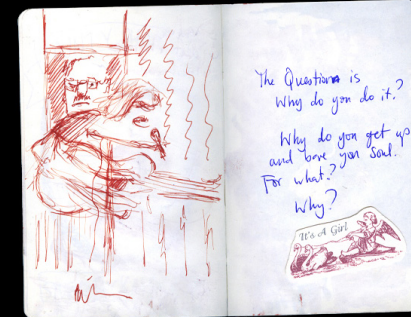 The Question is
Why do you do it?
Why do you get up
and bare your soul.
For what?
Why?
It's A Girl